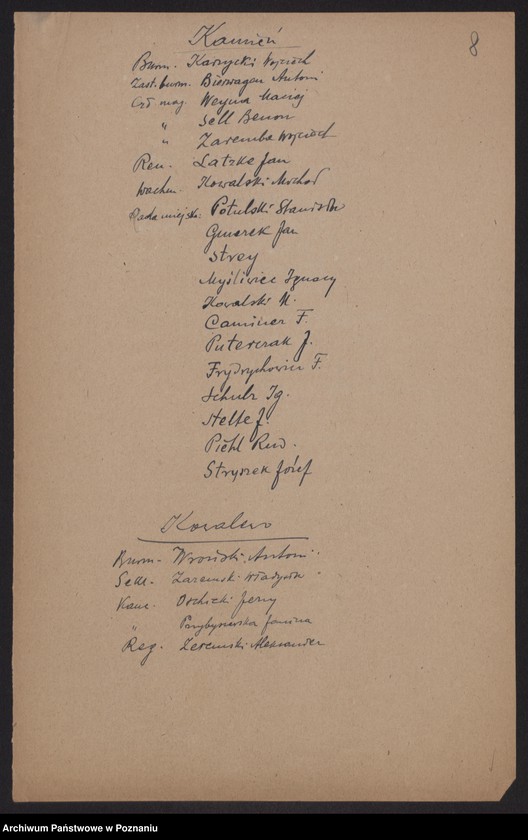 8
Kamień
Burm. Karnycki Wojciech
Zast. burm. Bierwagen Antoni
Czł. mag. Weyna Maciej
" Sell Benon
" Zaremba Wojciech
Ren. Latzke Jan
Wachm. Kowalski Michał
Rada miejsk. Potulski Stanisław
Gmerek Jan
Strey
Myśliwiec Ignacy
Kowalski M.
Caminer F.
Puterczak J.
Frydrychowicz F.
Schulz Ig.
Helte J.
Piehl Ruw.
Stryszek Józef
Kowalewo
Burm. Wroński Antoni
Sekr. Zaremski Władysław
Kanc. Jerzy
" Przybyszewska Janina
Reg. Zeremski Aleksander
Archiwum Państwowe w Poznaniu